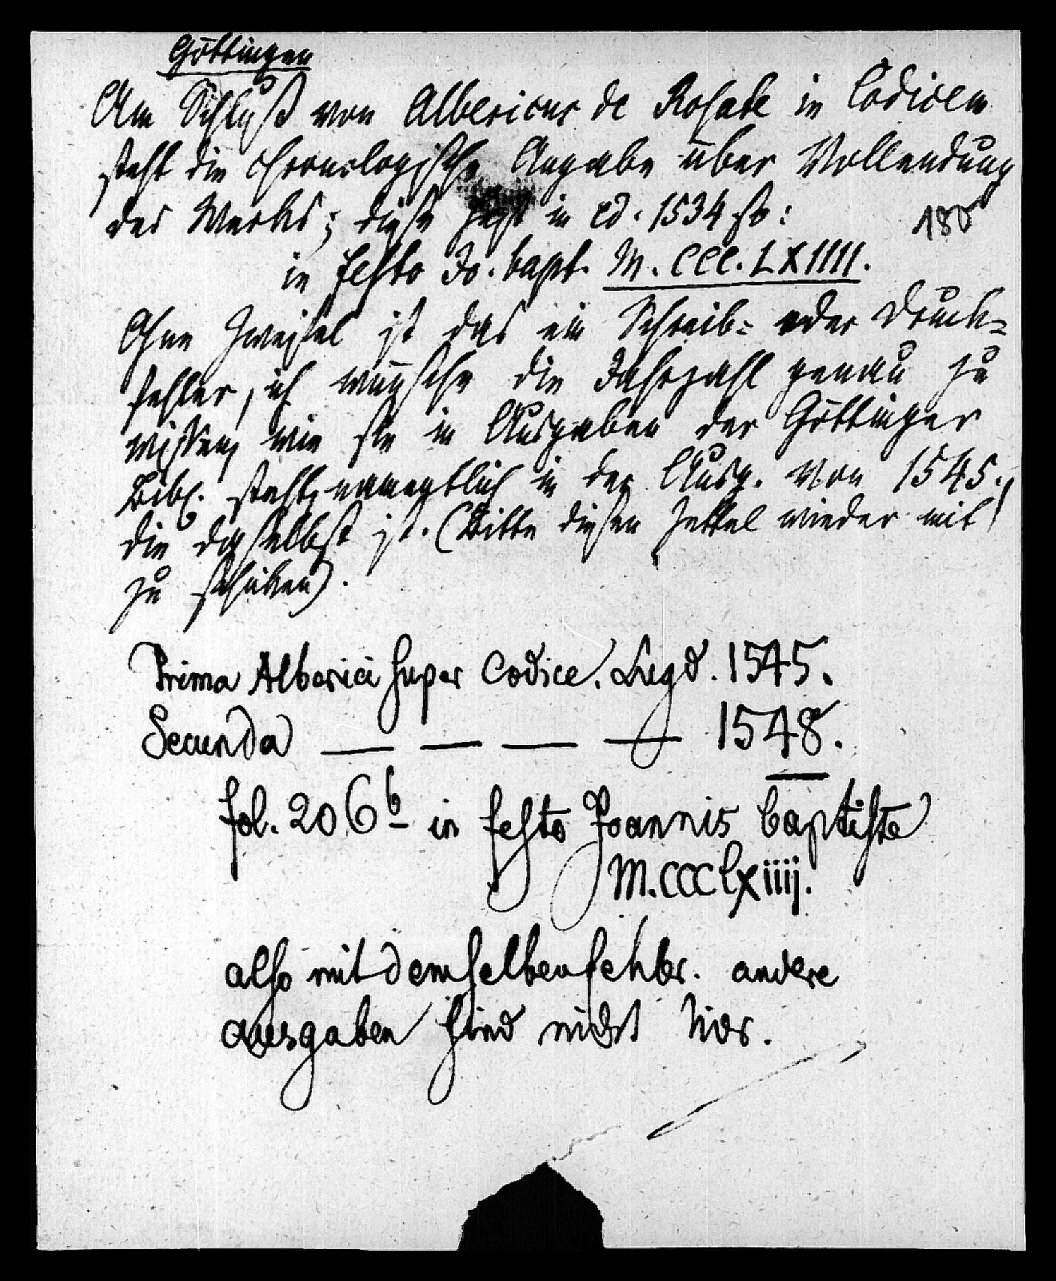 Göttingen
Am Schluß von Albericus de Rosate in Codicem
steht die chronologische Angabe über Vollendung
des Werks; diese heißt in ed. 1534 so:
180
in festo Jo. bapt. M. CCC. LXIIII.
Ohne Zweifel ist das ein Schreib= oder Druck=
fehler, ich wünsche die Jahrzahl genau zu
wissen, wie sie in Ausgaben der Göttinger
Bibl. steht, namentlich in der Ausg. von 1545.,
die daselbst ist. (Bitte diesen Zettel wieder mit
zu schicken).
Prima Alberici super Codice. Lugd. 1545.
Secunda — — — — 1548.
fol. 206b in festo Joannis baptiste
M.CCClxiiij.
also mit demselben fehler. andere
ausgaben sind nicht hier.